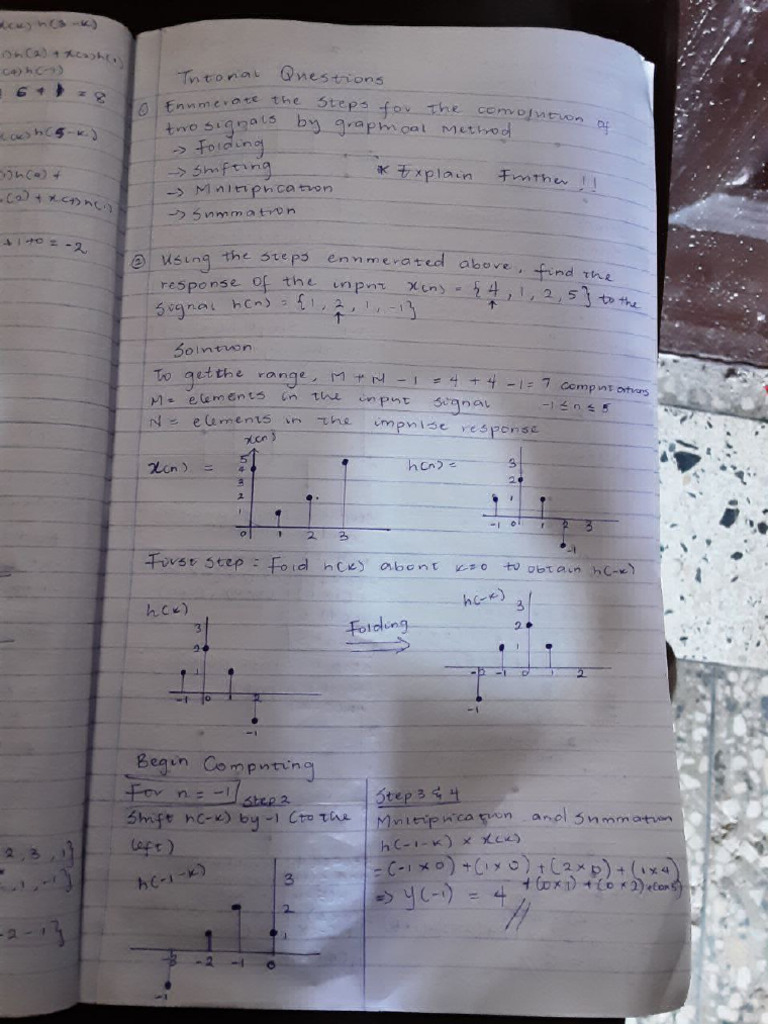 x(k)h(3-k)
)h(2) + x(3)h(
6 + 1 = 8
h(5-k)
+ 1 + 0 = -2
2, 3, 1}
, 1, -1}
-2 -1}
Tutorial Questions
① Enumerate the steps for the convolution of
two signals by graphical method
→ Folding
→ Shifting
* Explain Further !!
→ Multiplication
→ Summation
② Using the steps enumerated above, find the
response of the input x(n) = {4, 1, 2, 5} to the
↑
signal h(n) = {1, 2, 1, -1}
↑
Solution
To get the range, M + N - 1 = 4 + 4 - 1 = 7 computations
M = elements in the input signal -1 ≤ n ≤ 5
N = elements in the impulse response
x(n)
x(n) =
5
4
3
2
1
0 1 2 3
h(n) =
3
2
1
-1 0 1 2 3
-1
First step = Fold h(k) about k=0 to obtain h(-k)
h(k)
3
2
1
-1 0 1 2
-1
Folding
h(-k)
3
2
1
-2 -1 0 1 2
-1
Begin Computing
For n = -1
Step 2
Shift h(-k) by -1 (to the
left)
h(-1-k)
3
2
1
-3 -2 -1 0
-1
Step 3 & 4
Multiplication and Summation
h(-1-k) × x(k)
= (-1×0) + (1×0) + (2×0) + (1×4)
+ (0×1) + (0×2) + (0×5)
=> y(-1) = 4 //